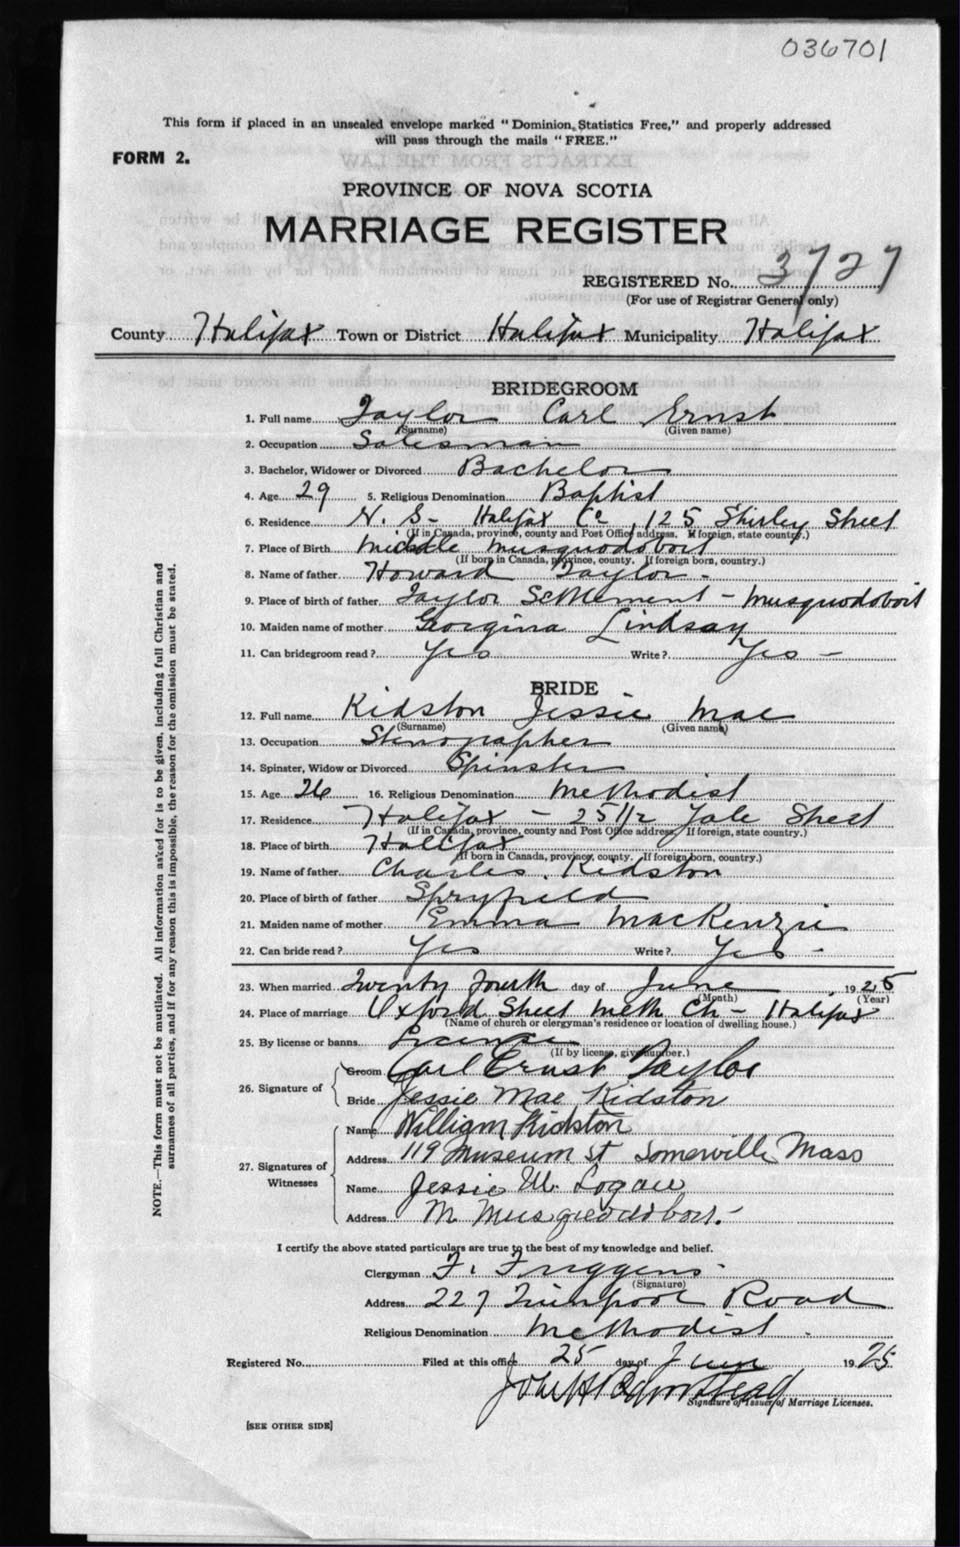 036701
This form if placed in an unsealed envelope marked "Dominion Statistics Free," and properly addressed
will pass through the mails "FREE."
FORM 2.
PROVINCE OF NOVA SCOTIA
MARRIAGE REGISTER
REGISTERED No. 3727
(For use of Registrar General only)
County Halifax Town or District Halifax Municipality Halifax
BRIDEGROOM
1. Full name Taylor Carl Ernst
(Surname) (Given name)
2. Occupation Salesman
3. Bachelor, Widower or Divorced Bachelor
4. Age 29 5. Religious Denomination Baptist
6. Residence N. S- Halifax Co, 125 Shirley Street
(If in Canada, province, county and Post Office address. If foreign, state country.)
7. Place of Birth Middle Musquodoboit
(If born in Canada, province, county. If foreign born, country.)
8. Name of father Howard Taylor -
9. Place of birth of father Taylor Settlement - Musquodoboit
10. Maiden name of mother Georgina Lindsay
11. Can bridegroom read? Yes Write? Yes -
BRIDE
12. Full name Kidston Jessie Mae
(Surname) (Given name)
13. Occupation Stenographer
14. Spinster, Widow or Divorced Spinster
15. Age 26 16. Religious Denomination Methodist
17. Residence Halifax - 25 1/2 Yale Street
(If in Canada, province, county and Post Office address, If foreign, state country.)
18. Place of birth Halifax
(If born in Canada, province, county. If foreign born, country.)
19. Name of father Charles. Kidston
20. Place of birth of father Spryfield
21. Maiden name of mother Emma MacKenzie
22. Can bride read? Yes Write? Yes -
23. When married Twenty Fourth day of June 1925
(Month) (Year)
24. Place of marriage Oxford Street Meth Ch - Halifax
(Name of church or clergyman's residence or location of dwelling house.)
25. By license or banns License
(If by license, give number.)
26. Signature of
Groom Carl Ernst Taylor
Bride Jessie Mae Kidston
27. Signatures of Witnesses
Name William Kidston
Address 119 Museum St Somerville Mass
Name Jessie M. Logan
Address M. Musquodoboit.-
I certify the above stated particulars are true to the best of my knowledge and belief.
Clergyman F. Friggens -
(Signature)
Address 227 Road
Religious Denomination Methodist .
Registered No. Filed at this office 25 day of June 1925
Signature of Issuer of Marriage Licenses.
[SEE OTHER SIDE]
NOTE.—This form must not be mutilated. All information asked for is to be given, including full Christian and
surnames of all parties, and if for any reason this is impossible, the reason for the omission must be stated.